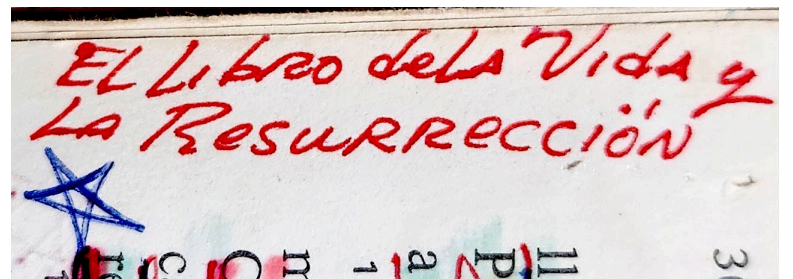 EL Libro de la Vida y
La Resurrección
3